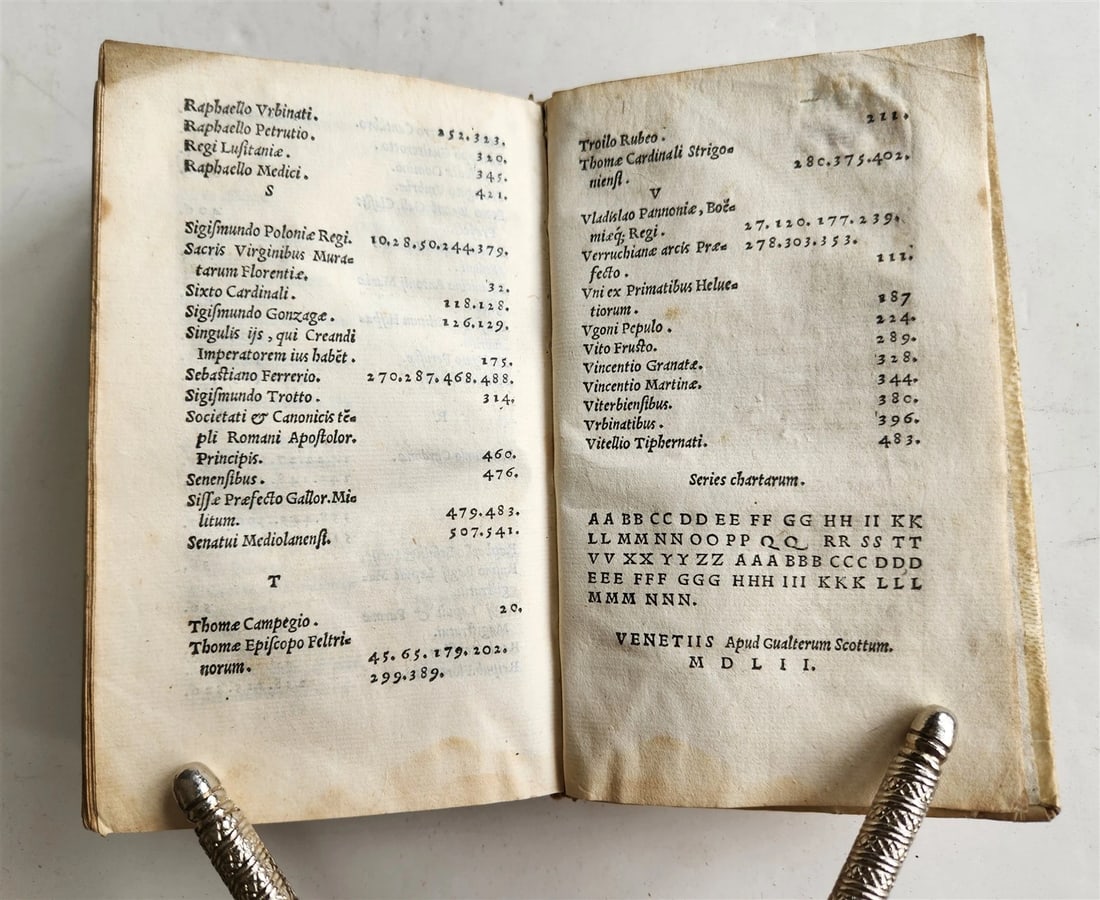 Raphaello Vrbinati. 252.323.
Raphaello Petrutio. 320.
Regi Luſitaniæ. 345.
Raphaello Medici. 421.
S
Sigiſmundo Poloniæ Regi. 10.28.50.244.379.
Sacris Virginibus Mura=
tarum Florentiæ. 32.
Sixto Cardinali. 118.128.
Sigiſmundo Gonzagæ. 126.129.
Singulis ijs, qui Creandi
Imperatorem ius habēt. 175.
Sebaſtiano Ferrerio. 270.287.468.488.
Sigiſmundo Trotto. 314.
Societati & Canonicis tē=
pli Romani Apoſtolor.
Principis. 460.
Senenſibus. 476.
Siſſæ Præfecto Gallor. Mi=
litum. 479.483.
Senatui Mediolanenſi. 507.541.
T
Thomæ Campegio. 20.
Thomæ Epiſcopo Feltri=
norum. 45.65.179.202.
299.389.
Troilo Rubeo. 211.
Thomæ Cardinali Strigo=
nienſi. 280.375.402.
V
Vladislao Pannoniæ, Boē=
miæq; Regi. 27.120.177.239.
278.303.353.
Verruchianæ arcis Præ=
fecto. 111.
Vni ex Primatibus Helue=
tiorum. 187
Vgoni Pepulo. 224.
Vito Fruſto. 289.
Vincentio Granatæ. 328.
Vincentio Martinæ. 344.
Viterbienſibus. 380.
Vrbinatibus. 396.
Vitellio Tiphernati. 483.
Series chartarum.
AA BB CC DD EE FF GG HH II KK
LL MM NN OO PP QQ RR SS TT
VV XX YY ZZ AAA BBB CCC DDD
EEE FFF GGG HHH III KKK LLL
MMM NNN.
VENETIIS Apud Gualterum Scottum.
M D L I I.